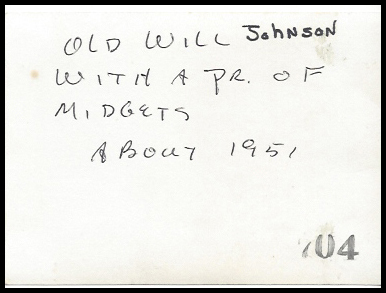 OLD WILL JOHNSON
WITH A PR. OF
MIDGETS
ABOUT 1951
04